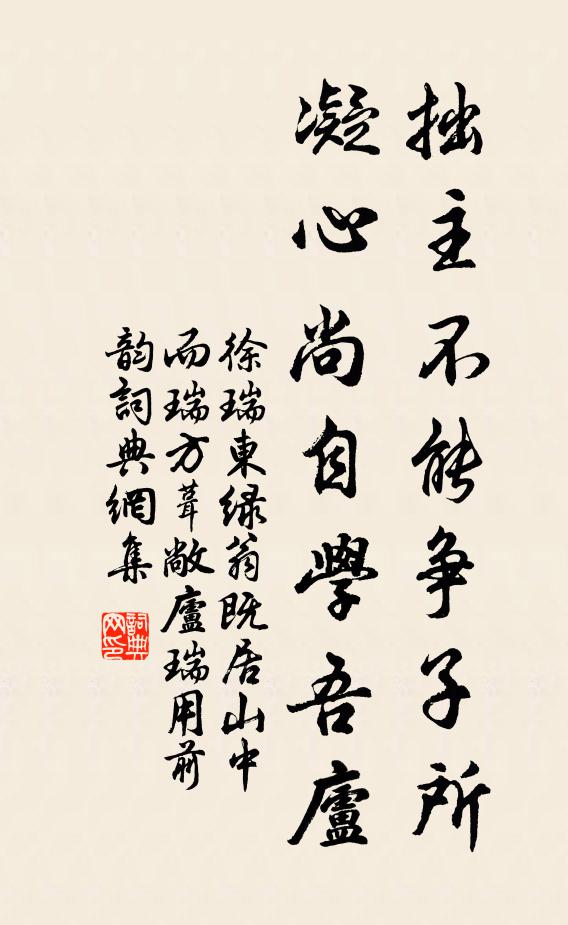 拙主不能争子所
凝心尚自學吾廬
徐瑞東緑翁既居山中
而瑞方葺敝廬瑞用前
韵詞典網集
詞典网印